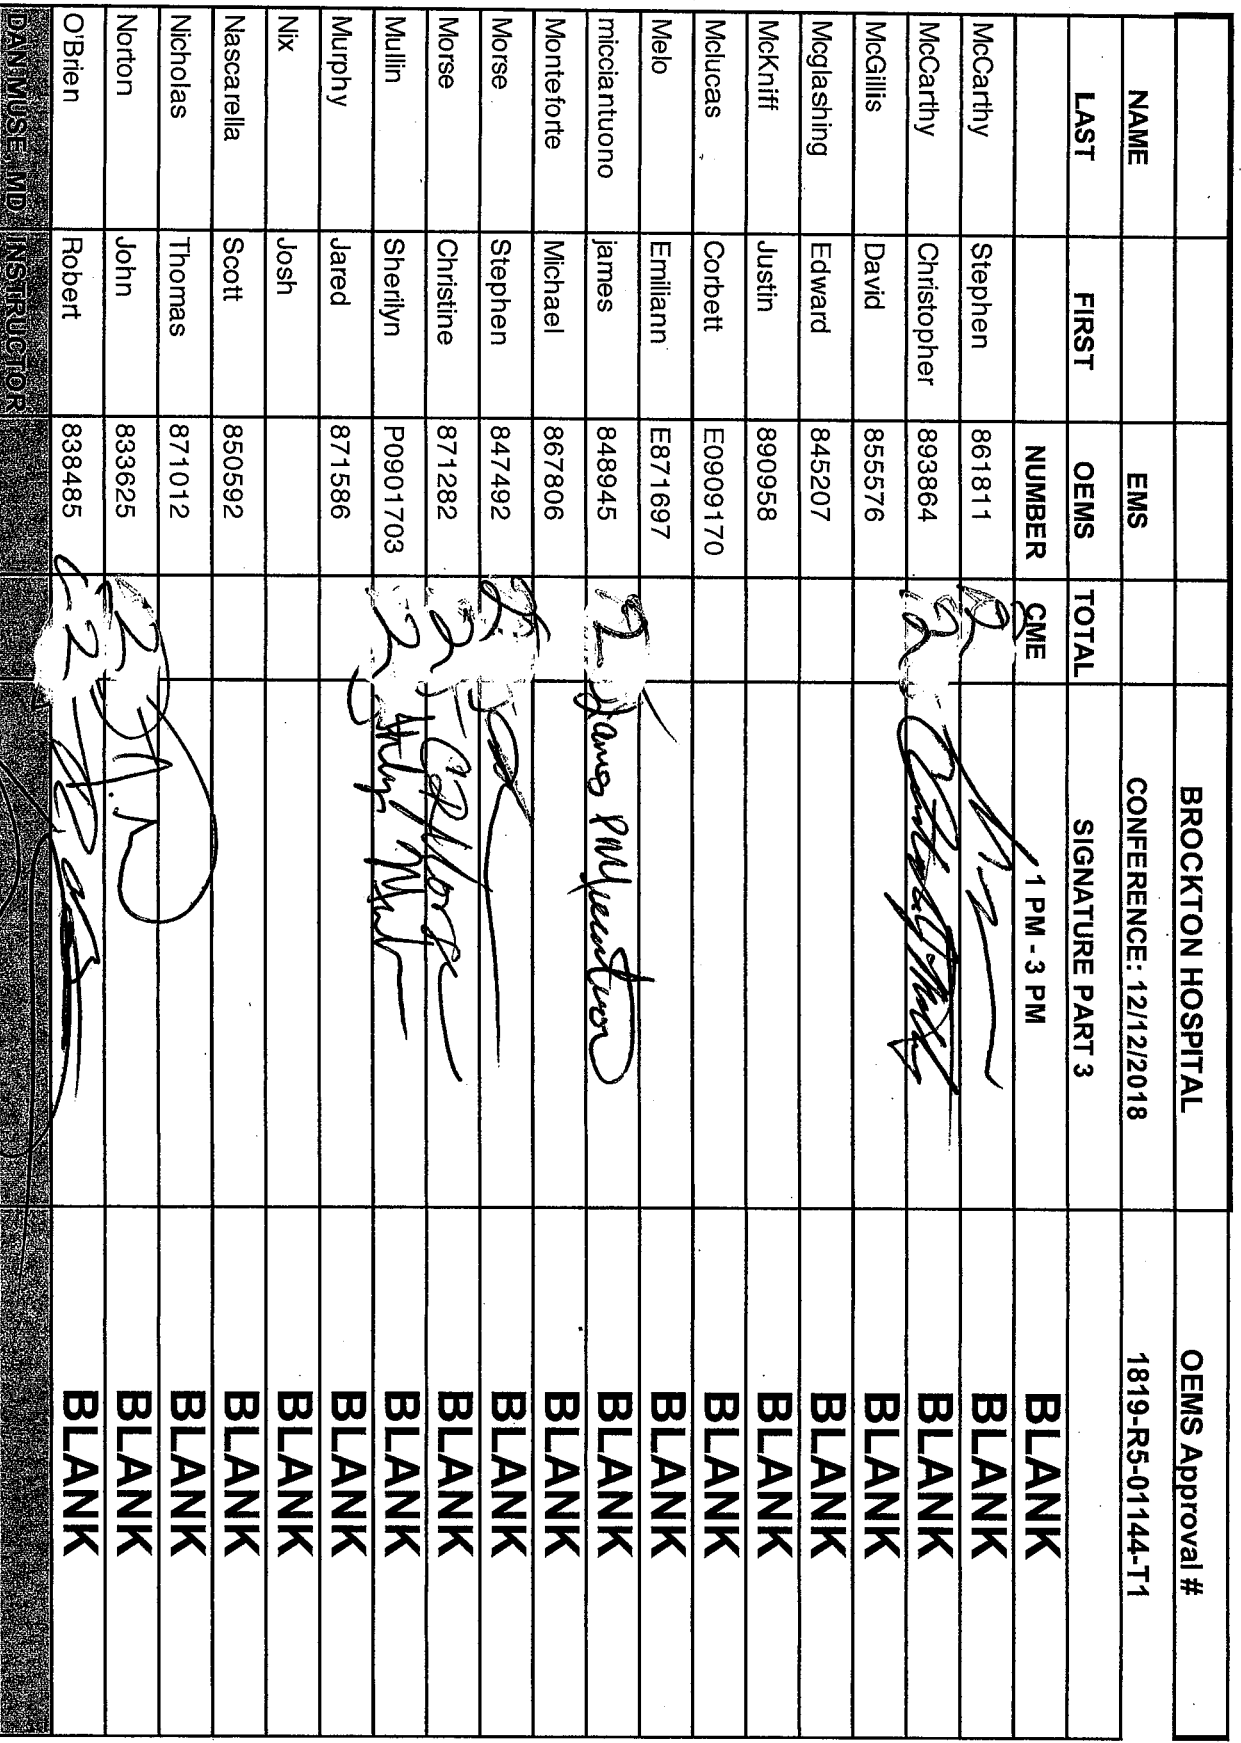 BROCKTON HOSPITAL OEMS Approval #
NAME EMS CONFERENCE: 12/12/2018 1819-R5-01144-T1
LAST FIRST OEMS TOTAL SIGNATURE PART 3
NUMBER CME 1 PM - 3 PM BLANK
McCarthy Stephen 861811 2 BLANK
McCarthy Christopher 893864 2 BLANK
McGillis David 855576 BLANK
Mcglashing Edward 845207 BLANK
McKniff Justin 890958 BLANK
Mclucas Corbett E0909170 BLANK
Melo Emiliann E871697 BLANK
micciantuono james 848945 2 James BLANK
Monteforte Michael 867806 BLANK
Morse Stephen 847492 2 BLANK
Morse Christine 871282 2 BLANK
Mullin Sherilyn P0901703 2 BLANK
Murphy Jared 871586 BLANK
Nix Josh BLANK
Nascarella Scott 850592 BLANK
Nicholas Thomas 871012 BLANK
Norton John 833625 2 BLANK
O'Brien Robert 838485 2 BLANK
DAN MUSE, MD INSTRUCTOR